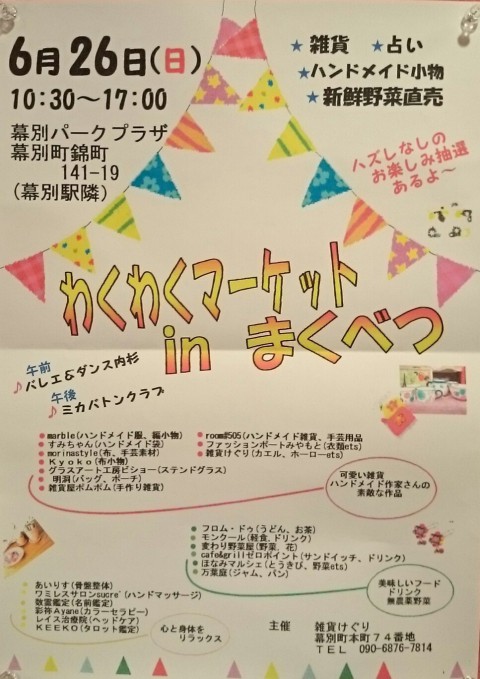 6月26日(日)
10:30～17:00
幕別パークプラザ
幕別町錦町
141-19
(幕別駅隣)
★ 雑貨 ★占い
★ハンドメイド小物
★ 新鮮野菜直売
ハズレなしの
お楽しみ抽選
あるよ～
わくわくマーケット
in まくべつ
午前
♪バレエ＆ダンス内杉
午後
♪ミカバトンクラブ
●marble(ハンドメイド服、編小物)
●すみちゃん(ハンドメイド袋)
●morinastyle(布、手芸素材)
●Ｋｙｏｋｏ(布小物)
●グラスアート工房ビショー(ステンドグラス)
●明洞(バッグ、ポーチ)
●雑貨屋ポムポム(手作り雑貨)
●room#505(ハンドメイド雑貨、手芸用品)
●ファッションポートみやもと(衣類ets)
●雑貨けぐり(カエル、ホーローets)
可愛い雑貨
ハンドメイド作家さんの
素敵な作品
●フロム・ドゥ(うどん、お茶)
●モンクール(軽食、ドリンク)
●変わり野菜屋(野菜、花)
●cafe&grillゼロポイント(サンドイッチ、ドリンク)
●ほなみマルシェ(とうきび、野菜ets)
●万葉庭(ジャム、パン)
美味しいフード
ドリンク
無農薬野菜
●あいりす(骨盤整体)
●ワミレスサロンsucre'(ハンドマッサージ)
●数霊鑑定(名前鑑定)
●彩祢Ayane(カラーセラピー)
●レイス治療院(ヘッドケア)
●ＫＥＥＫＯ(タロット鑑定)
心と身体を
リラックス
主催 雑貨けぐり
幕別町本町７４番地
ＴＥＬ 090-6876-7814